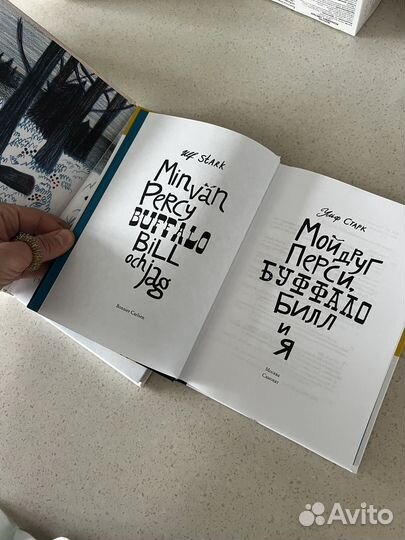 Ulf Stark
Min vän
Percy
Buffalo
Bill
och jag
Bonnier Carlsen
Ульф Старк
Мой друг
Перси,
Буффало
Билл
и
я
Москва
Самокат
Avito